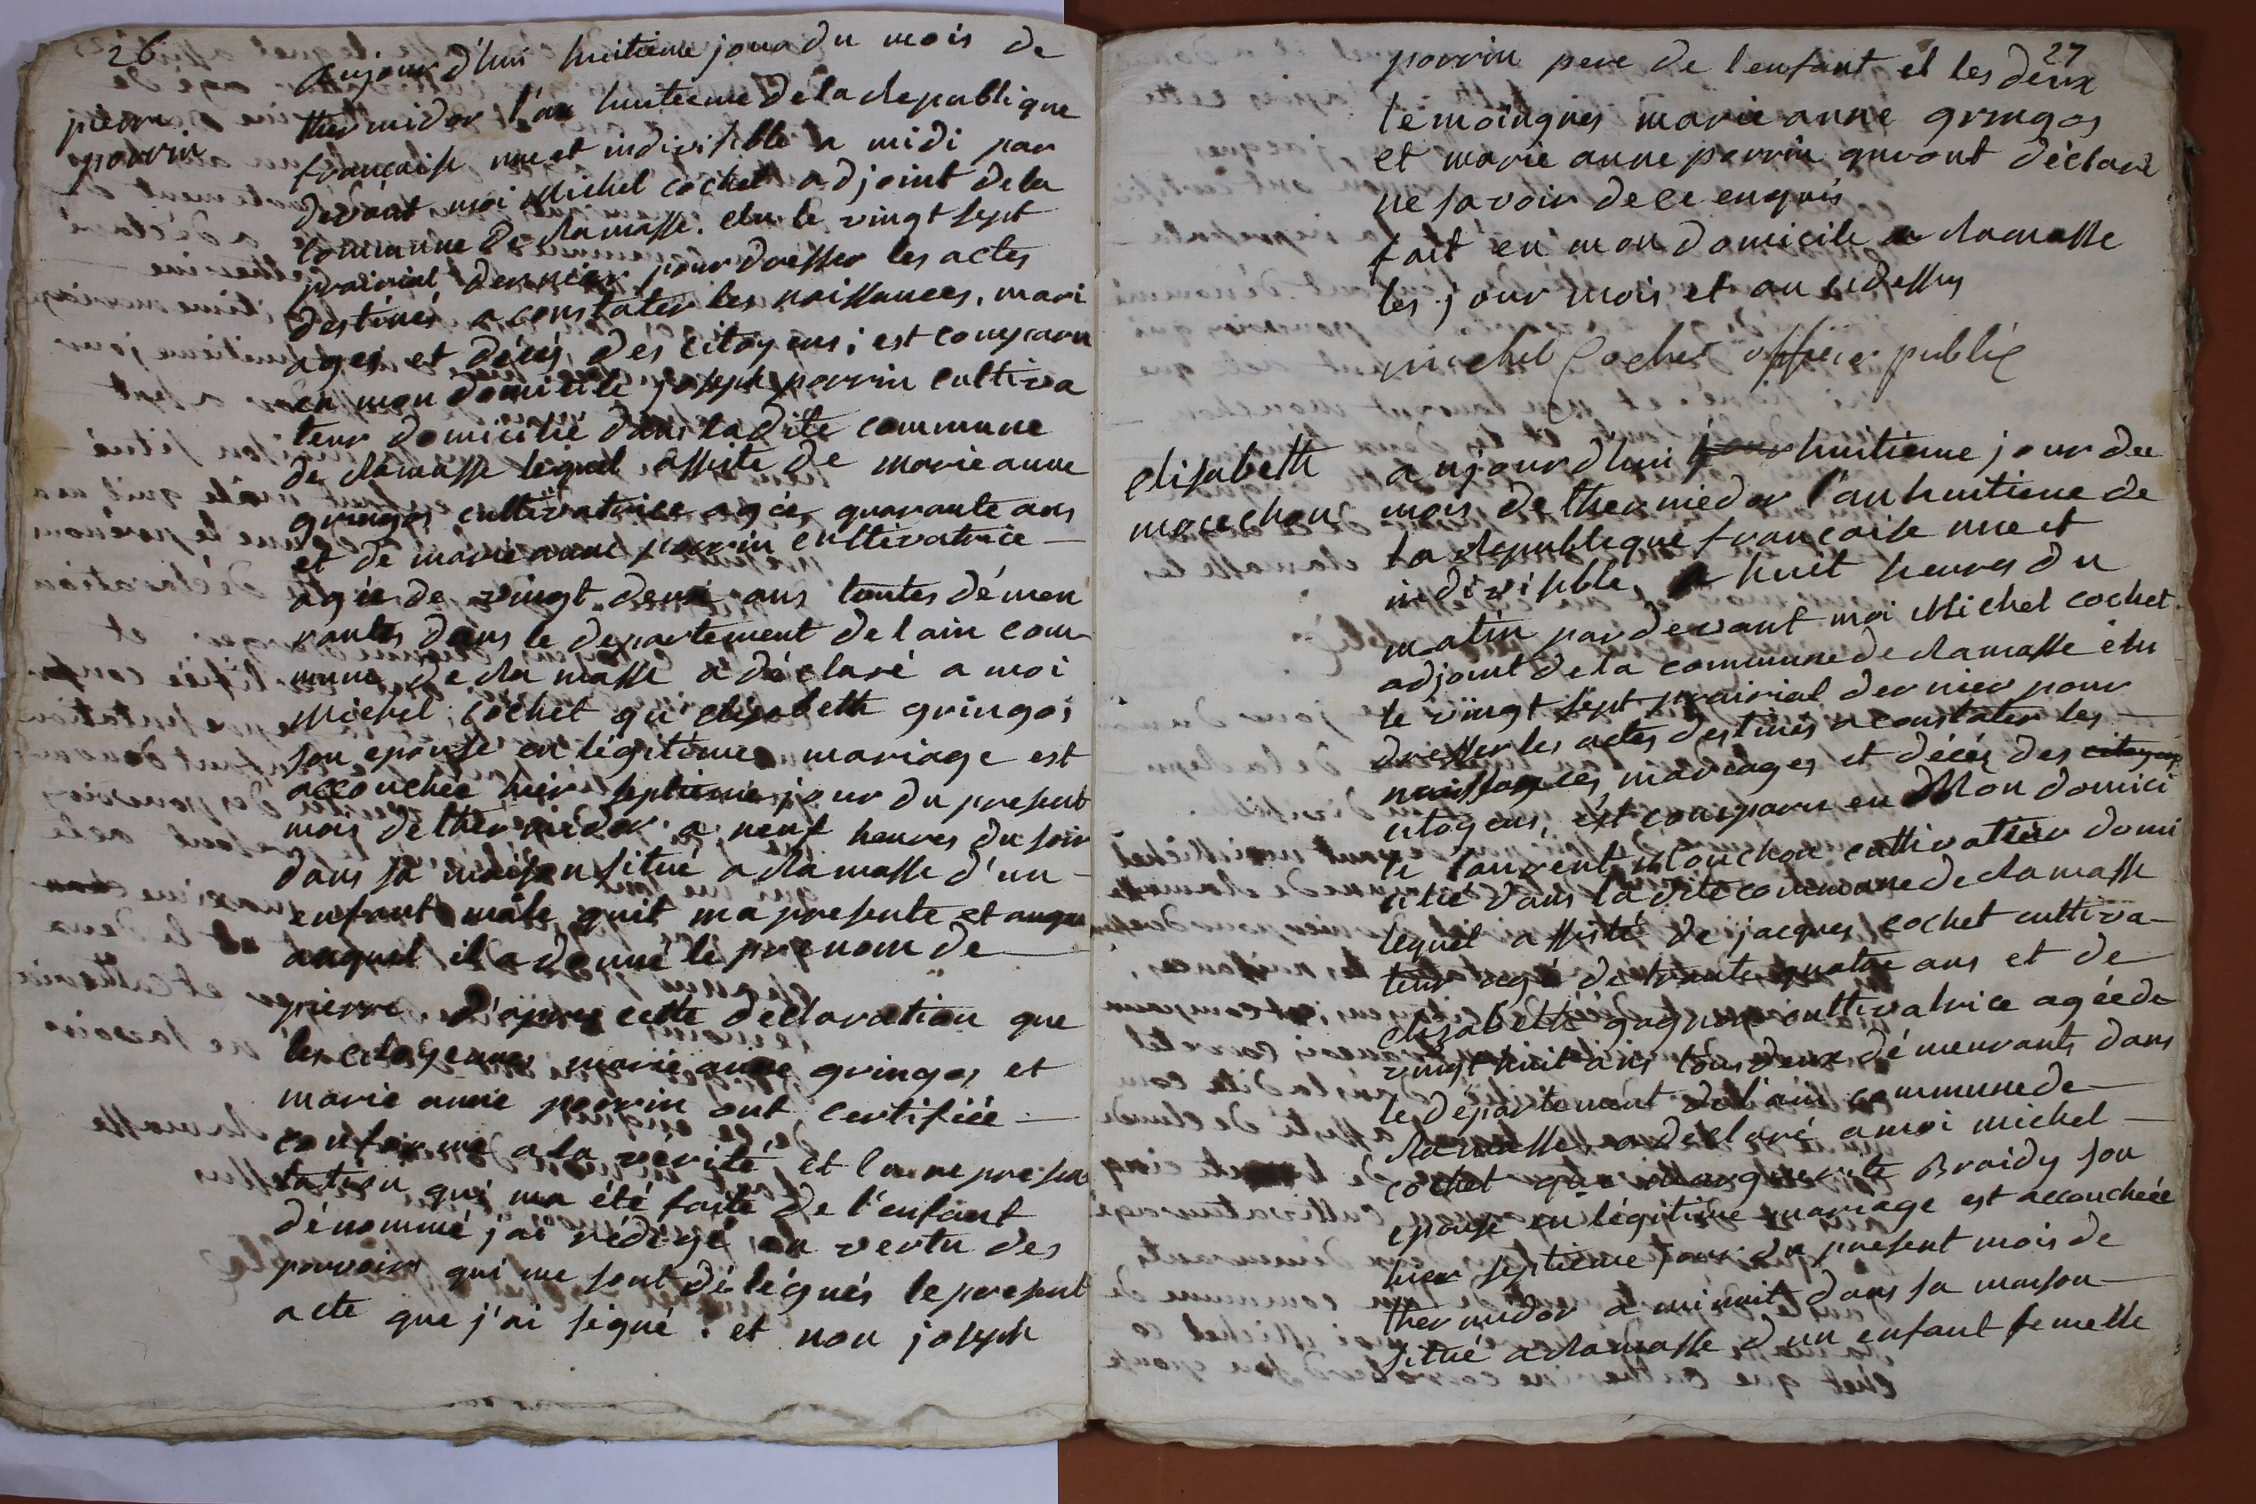 26
pierre
perrin
aujourd'hui huitieme jour du mois de
thermidor l'an huitieme de la republique
francaise une et indivisible a midi par
devant moi Michel cochet adjoint de la
commune de ramasse. elu le vingt sept
prairial dernier pour dresser les actes
destinés a constater les naissances, mari
ages et décés des citoyens; est comparu
en mon domicile joseph perrin cultiva
teur domicilié dans la dite commune
de ramasse lequel assisté de marie anne
gringos cultivatrice agée quarante ans
et de marie anne perrin cultivatrice
agée de vingt deux ans toutes démeu
rantes dans le departement de l'ain com
mune de ramasse a déclaré a moi
Michel cochet qu'elisabeth gringos
son epouse en légitime mariage est
accouchée hier septieme jour du present
mois de thermidor a neuf heures du soir
dans sa maison situé a ramasse d'un
enfant mâle quil ma presenté et auqu
auquel il a donné le prenom de
pierre d'apres cette declaration que
les citoyennes marie anne gringos et
marie anne perrin ont certifiée
conforme a la vérité, et la represen
tation qui ma été faite de l'enfant
dénommé j'ai rédigé en vertu des
pouvoirs qui me sont délégués le present
acte que j'ai signé. et non joseph
27
perrin pere de l'enfant et les deux
temoingnes marie anne gringos
et marie anne perrin qui ont déclaré
ne savoir de ce enquis
fait en mon domicile a ramasse
les jour mois et an cidessus
michel Cochet officier public
elisabeth
mouchon
aujourd'hui jour huitieme jour du
mois de thermidor l'an huitieme de
la republique francaise une et
indivisible, a huit heures du
matin pardevant moi Michel cochet
adjoint de la commune de ramasse élu
le vingt sept prairial dernier pour
dresser les actes destinés a constater les
naissances, mariages et décés des citoyens
citoyens, est comparu en Mon domici
le laurent Mouchon cultivateur domi
cilié dans la dite commune de ramasse
lequel assisté de jacques cochet cultiva
teur agé de trante quatre ans et de
elisabeth gagnon cultivatrice agée de
vingt huit ans tous deux démeurants dans
le département de l'ain commune de
ramasse, a declaré a moi michel
cochet que marguerite Braidy son
epouse en légitime mariage est accouchéé
hier septieme jour du present mois de
thermidor a minuit dans sa maison
situé a ramasse d'un enfant femelle